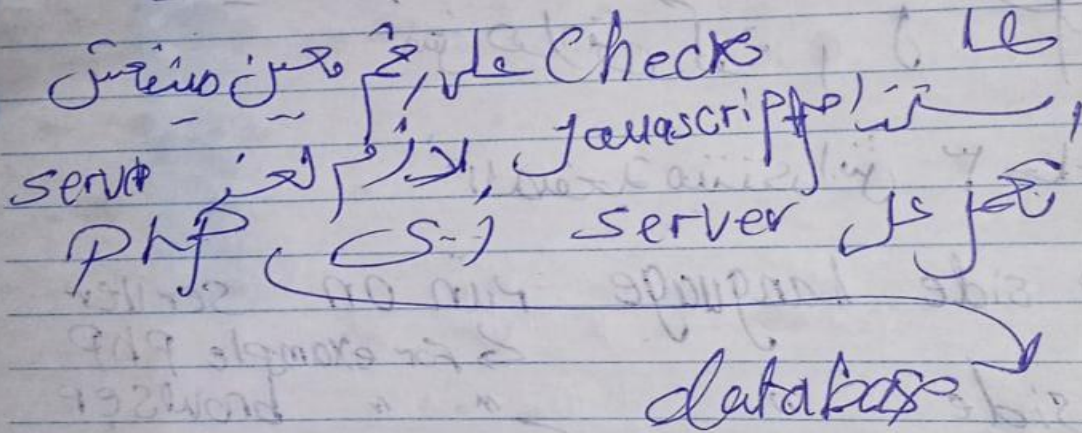 لما Check على رقم معين مينفعش
استخدام Javascript, لازم لغة server
تعمل على server زى PHP
database